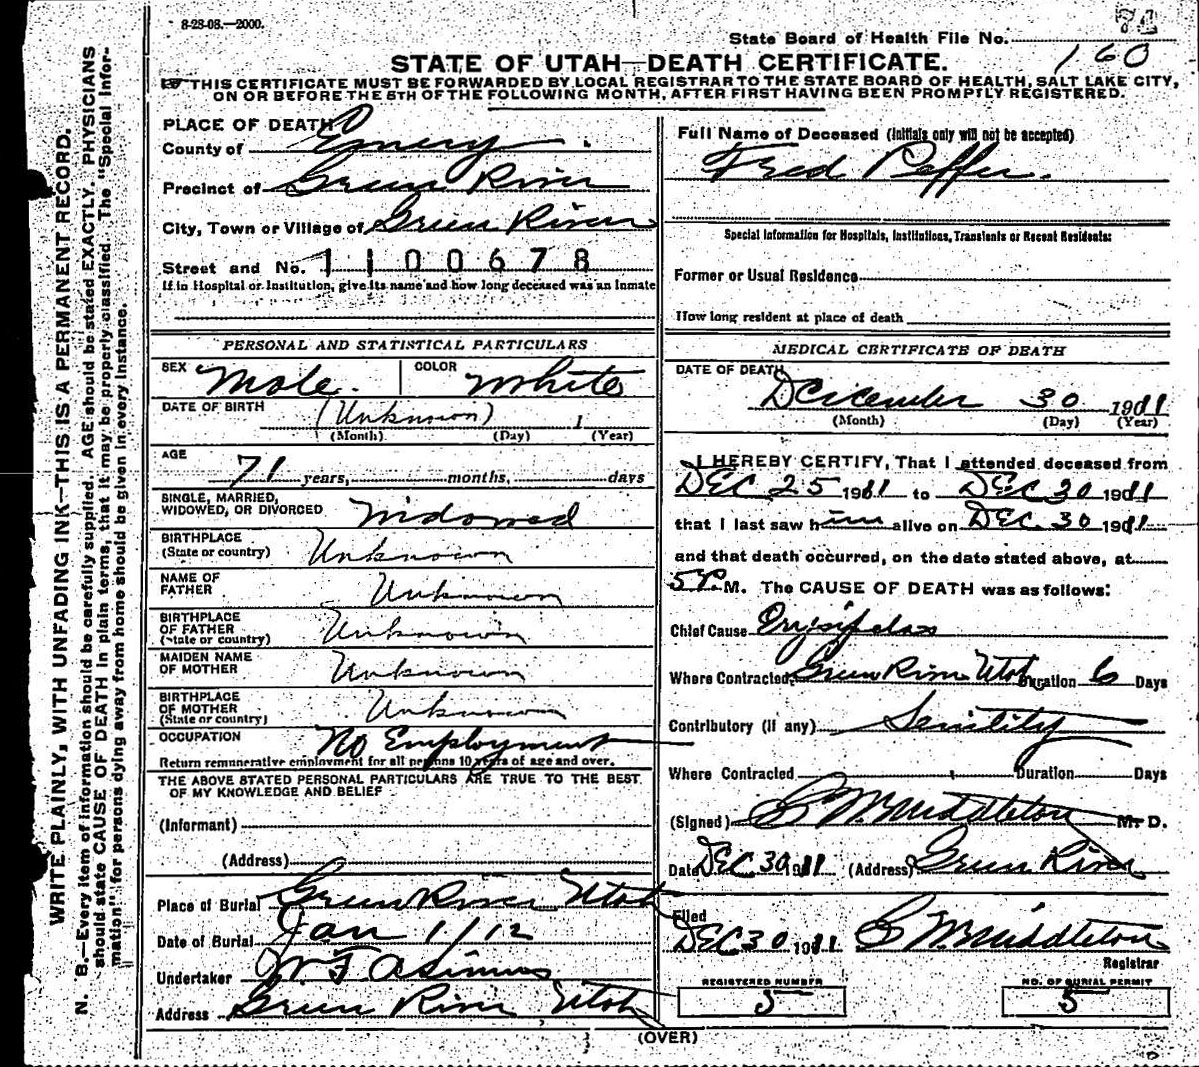 8-28-08.—2000.
State Board of Health File No.
160
STATE OF UTAH—DEATH CERTIFICATE.
THIS CERTIFICATE MUST BE FORWARDED BY LOCAL REGISTRAR TO THE STATE BOARD OF HEALTH, SALT LAKE CITY,
ON OR BEFORE THE 5TH OF THE FOLLOWING MONTH, AFTER FIRST HAVING BEEN PROMPTLY REGISTERED.
WRITE PLAINLY, WITH UNFADING INK—THIS IS A PERMANENT RECORD.
N. B.—Every item of information should be carefully supplied. AGE should be stated EXACTLY. PHYSICIANS
should state CAUSE OF DEATH in plain terms, that it may be properly classified. The "Special Infor-
mation" for persons dying away from home should be given in every instance.
PLACE OF DEATH
County of Emery
Precinct of Green River
City, Town or Village of Green River
Street and No. 1100678
If in Hospital or Institution, give its name and how long deceased was an Inmate
PERSONAL AND STATISTICAL PARTICULARS
SEX Male. COLOR White
DATE OF BIRTH (Unknown) 1
(Month) (Day) (Year)
AGE
71 years, months, days
SINGLE, MARRIED,
WIDOWED, OR DIVORCED Widowed
BIRTHPLACE
(State or country) Unknown
NAME OF
FATHER Unknown
BIRTHPLACE
OF FATHER
(State or country) Unknown
MAIDEN NAME
OF MOTHER Unknown
BIRTHPLACE
OF MOTHER
(State or country) Unknown
OCCUPATION No Employment
Return remunerative employment for all persons 10 years of age and over.
THE ABOVE STATED PERSONAL PARTICULARS ARE TRUE TO THE BEST
OF MY KNOWLEDGE AND BELIEF
(Informant)
(Address)
Place of Burial Green River Utah
Date of Burial Jan 1/12
Undertaker
Address Green River Utah
Full Name of Deceased (Initials only will not be accepted)
Fred Peffer.
Special Information for Hospitals, Institutions, Transients or Recent Residents:
Former or Usual Residence
How long resident at place of death
MEDICAL CERTIFICATE OF DEATH
DATE OF DEATH
December 30 1911
(Month) (Day) (Year)
I HEREBY CERTIFY, That I attended deceased from
DEC 25 1911 to DEC 30 1911
that I last saw him alive on DEC. 30 1911
and that death occurred, on the date stated above, at
5 P. M. The CAUSE OF DEATH was as follows:
Chief Cause Erysipelas
Where Contracted Green River Utah Duration 6 Days
Contributory (if any) Senility
Where Contracted Duration Days
(Signed) C W Middleton M. D.
Date DEC 30 1911 (Address) Green River
Filed
DEC 30 1911 C W Middleton
Registrar
REGISTERED NUMBER
5
NO. OF BURIAL PERMIT
5
(OVER)